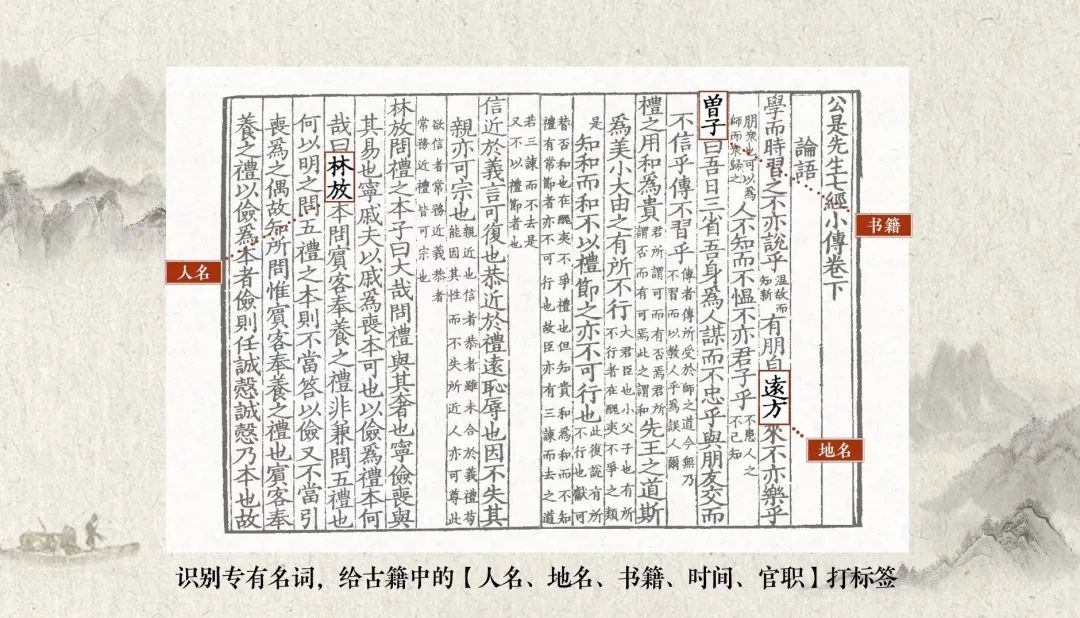 公是先生七經小傳卷下
論語
學而時習之不亦說乎溫故而知新有朋自遠方來不亦樂乎
朋衆也可以為師而衆歸之人不知而不慍不亦君子乎不患人之不己知
曽子曰吾日三省吾身為人謀而不忠乎與朋友交而
不信乎傳不習乎傳者傳所受於師之道今無乃不習而以教人乎為誤人爾
禮之用和為貴君所謂可而有否焉君所謂否而有可焉此之謂和先王之道斯
為美小大由之有所不行大君臣也小父子也有所不行者在醜夷不爭之類
是知和而和不以禮節之亦不可行也此復說有所不行也獻可
替否和也在醜夷不爭禮也但知貴和為和而不知禮有常節者亦不可行也故臣亦有三諫而去之道
若三諫而不去是又不以禮節者也
信近於義言可復也恭近於禮遠恥辱也因不失其
親亦可宗也親近也信者恭者雖未合於義禮苟能因其性而不失所近人亦可尊此
欲信者常務近義恭者常務近禮皆可宗也
林放問禮之本子曰大哉問禮與其奢也寧儉喪與
其易也寧戚夫以戚為喪本可也以儉為禮本何
哉曰林放本問賓客奉養之禮非兼問五禮也
何以明之問五禮之本則不當答以儉又不當引
喪為之偶故知所問惟賓客奉養之禮也賓客奉
養之禮以儉為本者儉則任誠慤誠慤乃本也故
书籍
人名
地名
识别专有名词，给古籍中的【人名、地名、书籍、时间、官职】打标签